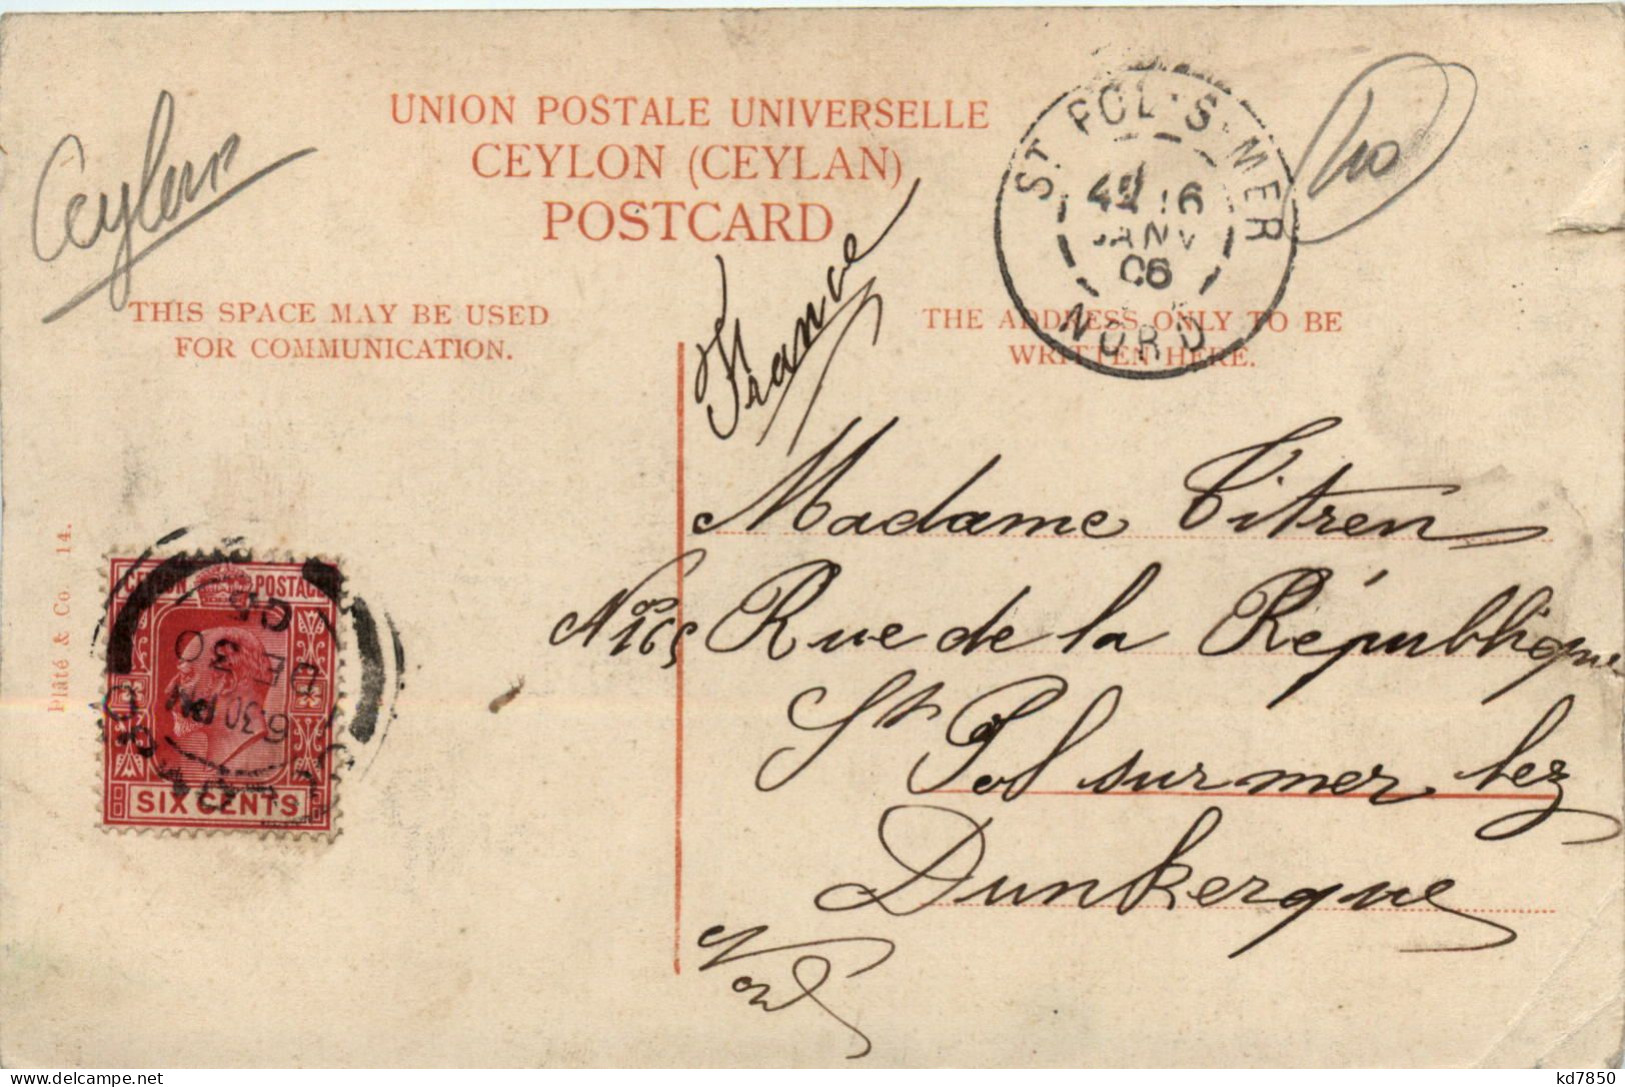 Ceylon
UNION POSTALE UNIVERSELLE
CEYLON (CEYLAN)
POSTCARD
THIS SPACE MAY BE USED
FOR COMMUNICATION.
THE ADDRESS ONLY TO BE
WRITTEN HERE.
ST POL-S-MER
16
JANV
06
NORD
France
Madame Titren
No 165 Rue de la République
St Pol sur mer lez
Dunkerque
Nord
Plâté & Co. 14.
CEYLON POSTAGE
6.30 PM
DE 30
05
SIX CENTS
kd7850